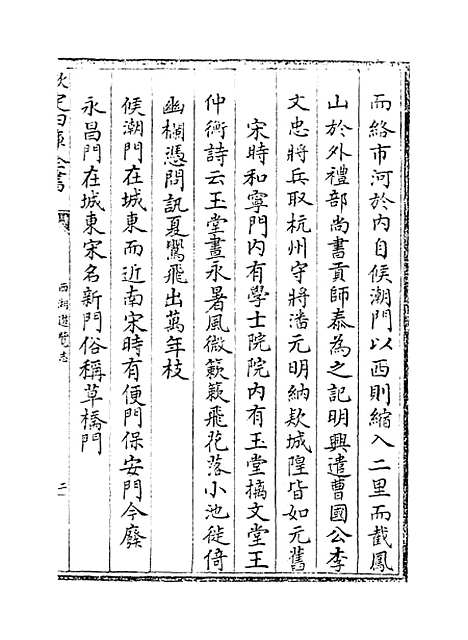 而絡市河於内自候潮門以西則縮入二里而截鳳
山於外禮部尚書貢師泰為之記明興遣曹國公李
文忠將兵取杭州守將潘元明納欵城隍皆如元舊
宋時和寧門内有學士院院内有玉堂摛文堂王
仲衡詩云玉堂晝永暑風微簌簌飛花落小池徙倚
幽欄憑問訊夏鸎飛出萬年枝
候潮門在城東而近南宋時有便門保安門今廢
永昌門在城東宋名新門俗稱草橋門
欽定四庫全書
西湖遊覽志
二